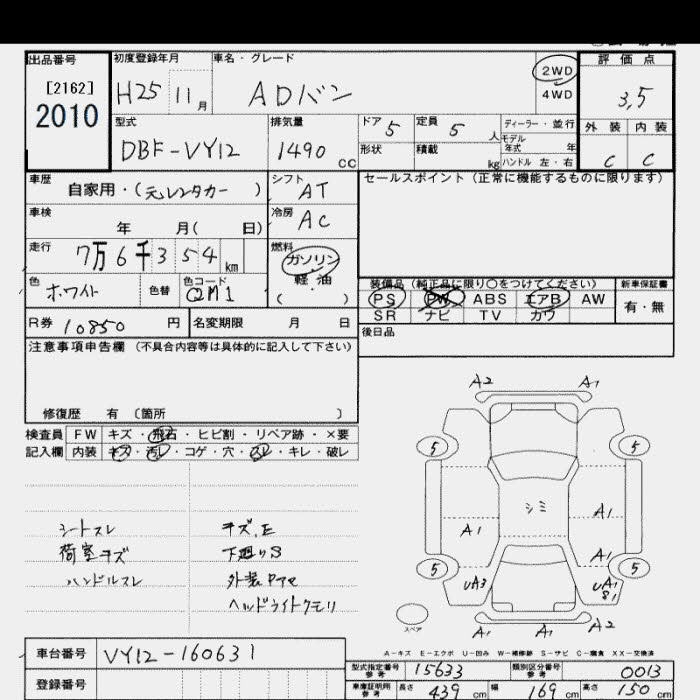 出品番号
[2162]
2010
初度登録年月
H25 11月
車名・グレード
ADバン
2WD
4WD
評価点
3,5
外装 内装
C C
型式
DBF-VY12
排気量
1490 CC
ドア 5
形状
定員 5 人
積載 kg
ディーラー・並行
モデル年式 年
ハンドル 左・右
車歴
自家用・(元レンタカー)
シフト
AT
車検
年 月( 日)
冷房
AC
走行
7万6千354km
燃料
ガソリン
軽・油
( )
色
ホワイト
色替
色コード
QM1
R券 10850 円
名変期限 月 日
セールスポイント(正常に機能するものに限ります)
装備品(純正品に限り○をつけてください)
PS PW ABS エアB AW
SR ナビ TV カワ
新車保証書
有・無
後日品
注意事項申告欄(不具合内容等は具体的に記入して下さい)
修復歴 有〔箇所 〕
検査員
記入欄
FW キズ・飛石・ヒビ割・リペア跡・×要
内装 キズ・汚レ・コゲ・穴・スレ・キレ・破レ
シートスレ
荷室キズ
ハンドルスレ
キズ,E
下廻りS
ヘッドライトクモリ
A2 A1
5 5
シミ
A1 A1
A1
5 5
UA3 UA1
S1
スペア
A1 A1 A2
A-キズ E-エクボ U-凹み W-補修跡 S-サビ C-腐食 XX-交換済
車台番号 VY12-160631
登録番号
型式指定番号
参考
15633
類別区分番号
参考
0013
車庫証明用
参考
長さ 439 cm
幅 169 cm
高さ 150 cm